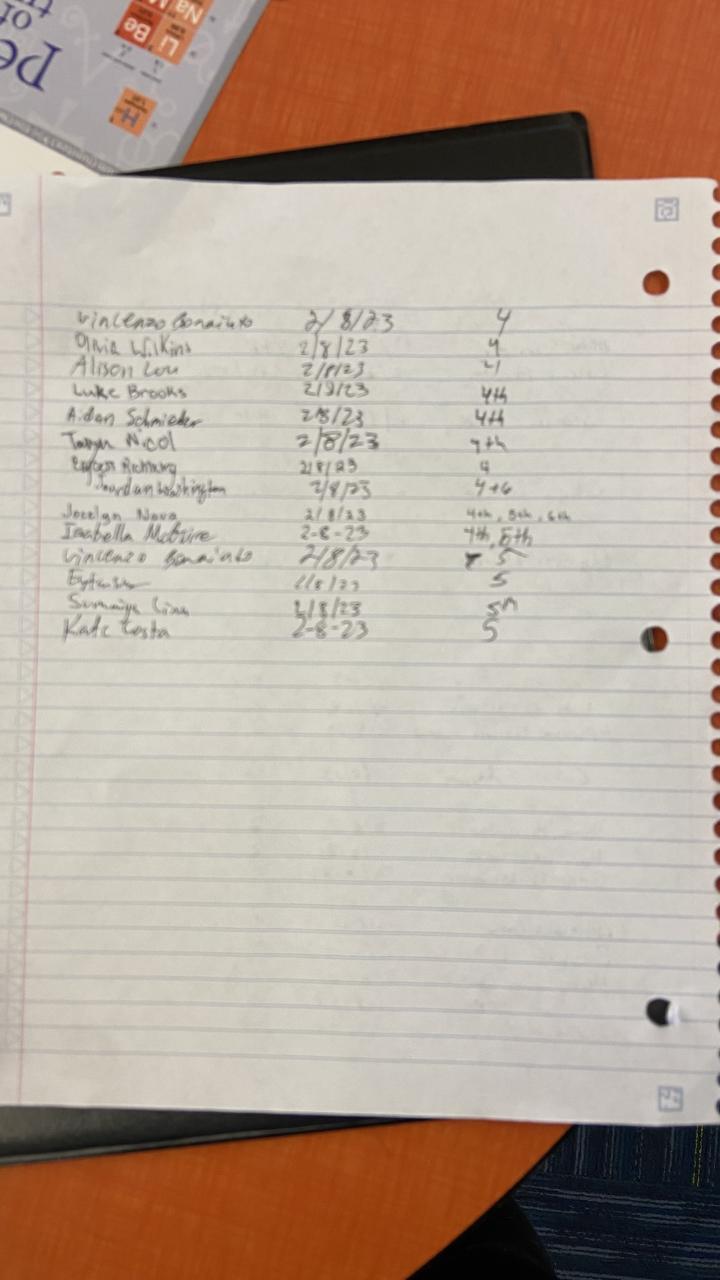 Na M
Li Be
of tu
pe
H
Vincenzo Bonaiuto 2/8/23 4
Olivia Wilkins 2/8/23 4
Alison Lou 2/8/23 4
Luke Brooks 2/8/23 4th
Aidan Schmieder 2/8/23 4th
Taryn Nicol 2/8/23 4th
2/8/23 4
Jordan Washington 2/8/23 4+6
Jocelyn Nova 2/8/23 4th, 5th, 6th
Isabella McGuire 2-8-23 4th, 5th
Vincenzo Bonaiuto 2/8/23 5
2/8/23 5
Sumaiya 2/8/23 5th
Kate Costa 2-8-23 5